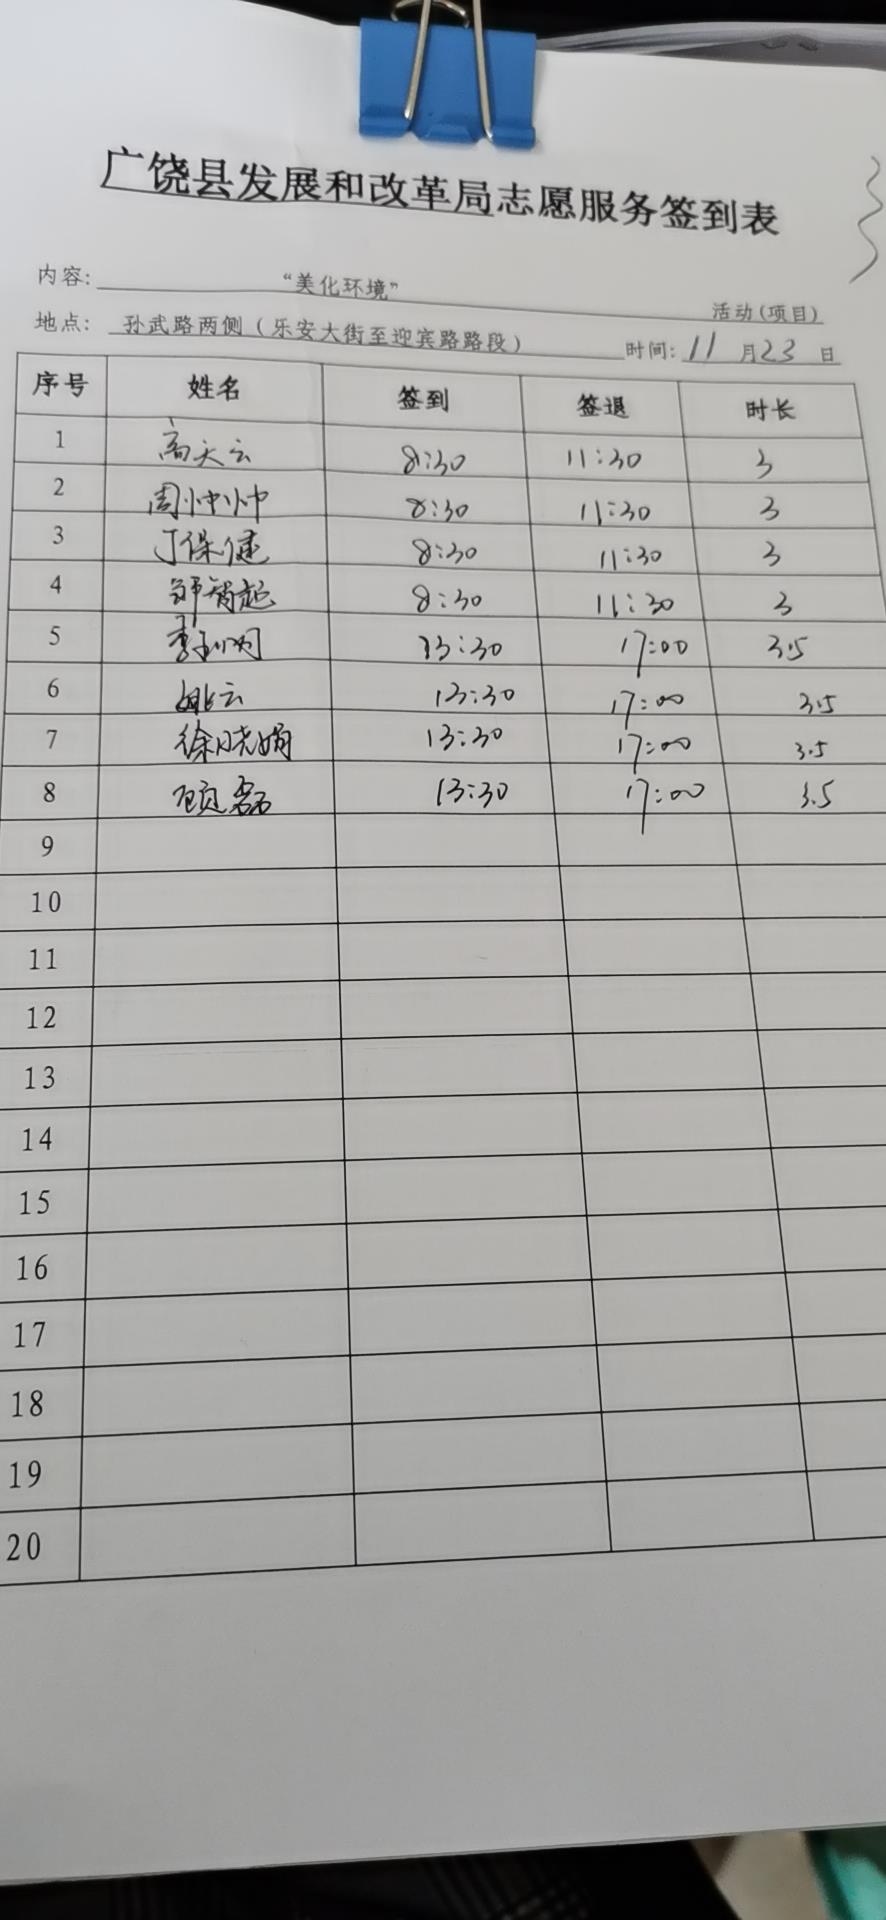 广饶县发展和改革局志愿服务签到表
内容: “美化环境” 活动(项目)
地点: 孙武路两侧（乐安大街至迎宾路路段） 时间: 11 月 23 日
序号 姓名 签到 签退 时长
1 高天云 8:30 11:30 3
2 周忡忡 8:30 11:30 3
3 丁保健 8:30 11:30 3
4 8:30 11:30 3
5 13:30 17:00 3.5
6 姚云 13:30 17:00 3.5
7 徐晓娟 13:30 17:00 3.5
8 顾磊 13:30 17:00 3.5
9
10
11
12
13
14
15
16
17
18
19
20